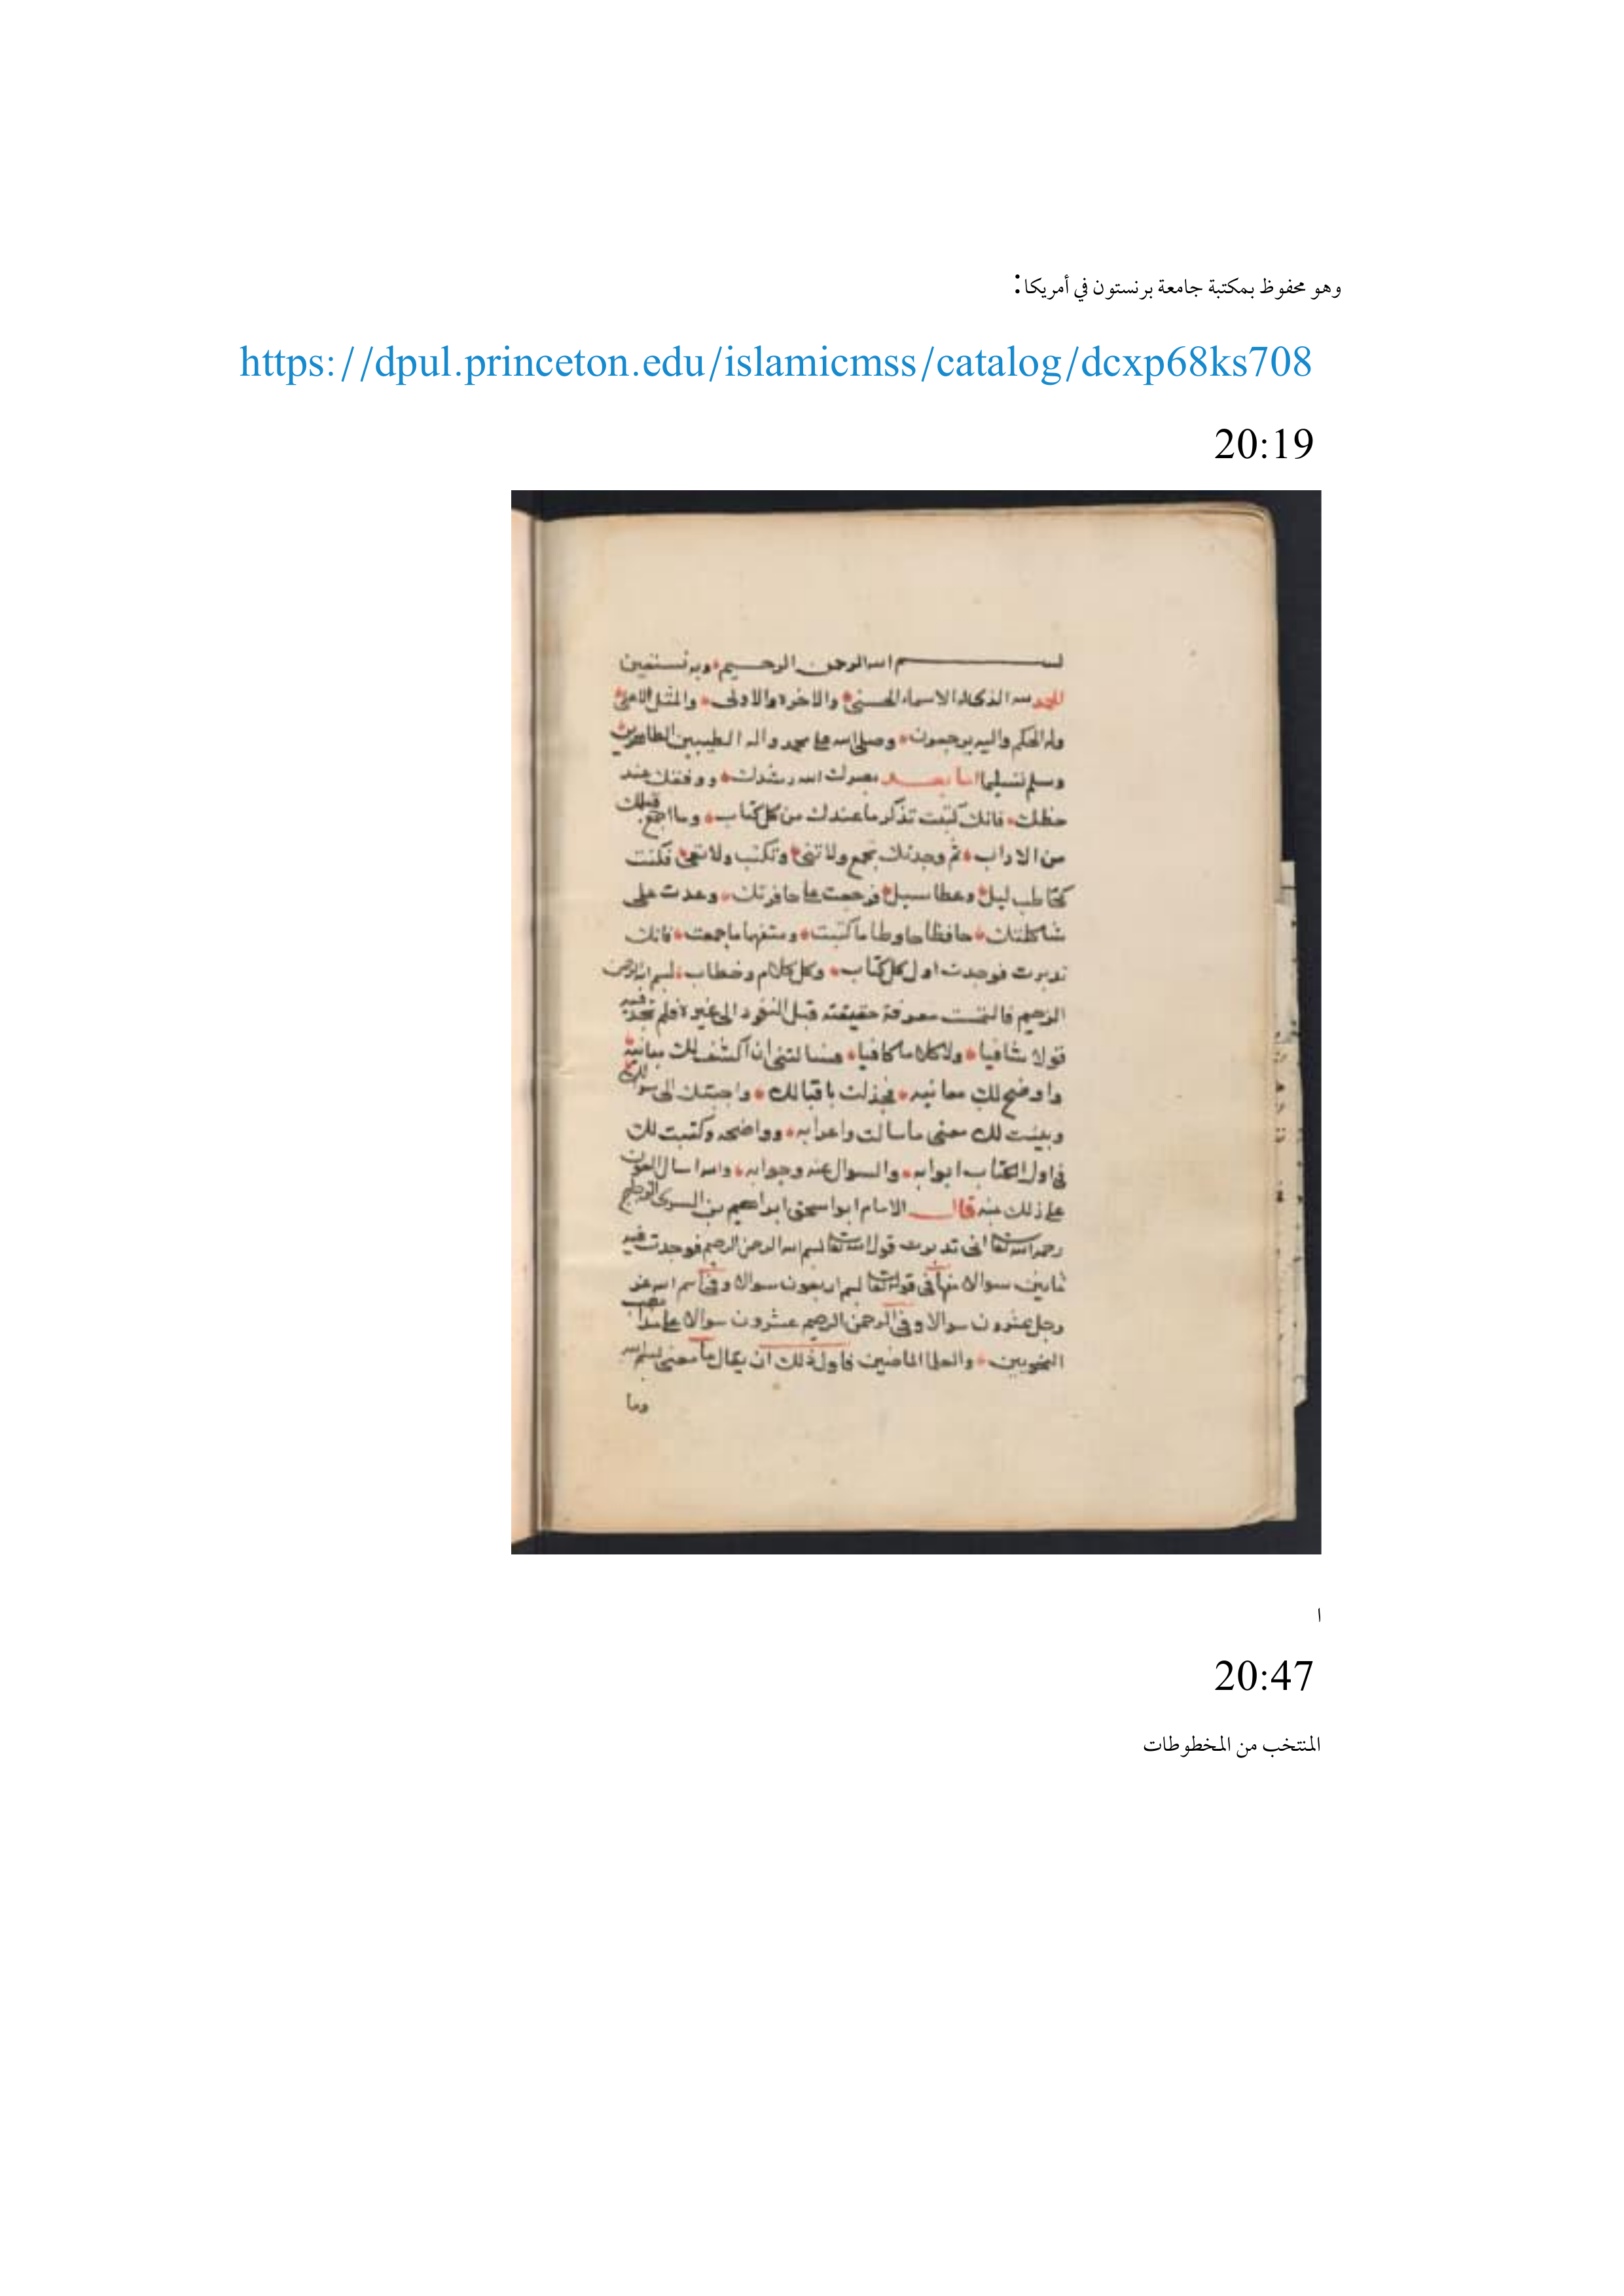 وهو محفوظ بمكتبة جامعة برنستون في أمريكا:
https://dpul.princeton.edu/islamicmss/catalog/dcxp68ks708
20:19
بسم الله الرحمن الرحيم وبه نستعين
الحمد لله الذي له الاسماء الحسنى والاخرة والاولى والمثل الاعلى
وله الحكم واليه يرجعون وصلى الله على محمد واله الطيبين الطاهرين
وسلم تسليما اما بعد بصرك الله رشدك ووفقك عند
حظك فانك كتبت تذكر ما عندك من كل كتاب وما اجمع قبلك
من الاداب ثم وجدتك تجمع ولا تنى وتكتب ولا تعى فكنت
كحاطب ليل فرجعت على حافرتك وعدت على
شاكلتك حافظا ما كتبت ومتفهما ما جمعت فانك
تدبرت فوجدت اول كل كتاب وكل كلام وخطاب بسم الله الرحمن
الرحيم فالتمست معرفة حقيقته قبل النفوذ الى غيره فلم تجد فيه
قولا شافيا ولا كلاما كافيا فسالتنى ان اكشف لك
واوضح لك معانيه فجذلت باقبالك واجبتك الى سوالك
وبينت لك معنى ما سالت واعرابه وواضحه وكتبت لك
فى اول الكتاب ابوابه والسوال عنه وجوابه والله اسال العون
على ذلك منه قال الامام ابو اسحق ابراهيم بن السرى الزجاج
رحمه الله تعالى انى تدبرت قول الله تعالى بسم الله الرحمن الرحيم فوجدت فيه
ثمانين سوالا منها فى قوله تعالى بسم اربعون سوالا وفى اسم الله عز
وجل عشرون سوالا وفى الرحمن الرحيم عشرون سوالا على مذاهب
النحويين والعلما الماضين فاول ذلك ان يقال ما معنى بسم الله
وما
ا
20:47
المنتخب من المخطوطات